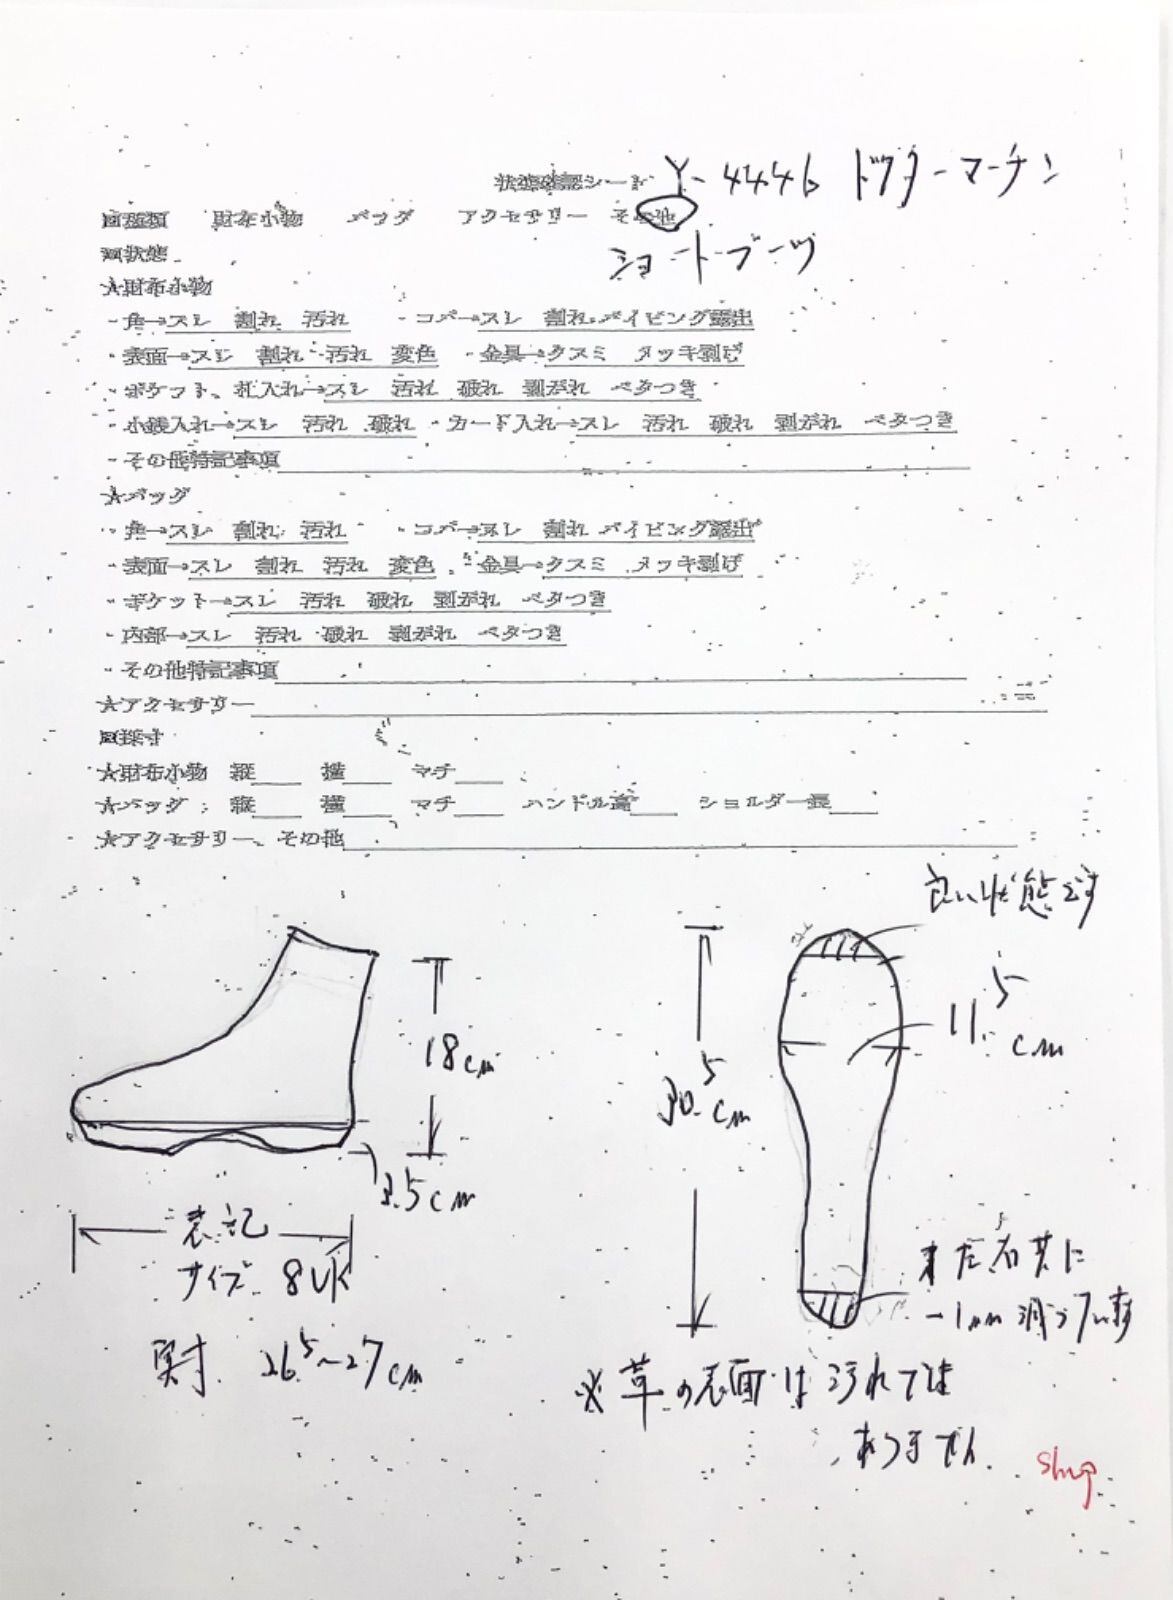 状態確認シート Y-4446 ドクターマーチン
■種類 財布小物 バッグ アクセサリー その他
ショートブーツ
■状態
★財布小物
・角→スレ 割れ 汚れ ・コバ→スレ 割れ パイピング露出
・表面→スレ 割れ 汚れ 変色 ・金具→クスミ メッキ剥げ
・ポケット、札入れ→スレ 汚れ 破れ 剥がれ ベタつき
・小銭入れ→スレ 汚れ 破れ ・カード入れ→スレ 汚れ 破れ 剥がれ ベタつき
・その他特記事項
★バッグ
・角→スレ 割れ 汚れ ・コバ→スレ 割れ パイピング露出
・表面→スレ 割れ 汚れ 変色 ・金具→クスミ メッキ剥げ
・ポケット→スレ 汚れ 破れ 剥がれ ベタつき
・内部→スレ 汚れ 破れ 剥がれ ベタつき
・その他特記事項
★アクセサリー
■採寸
★財布小物 縦 横 マチ
★バッグ 縦 横 マチ ハンドル高 ショルダー長
★アクセサリー、その他
良い状態です
18cm
3.5cm
表記
サイズ 8UK
実寸 26.5~27cm
30.5cm
11.5cm
左右共に
1mm 減っています
※革の表面は汚れては
ありません
shop